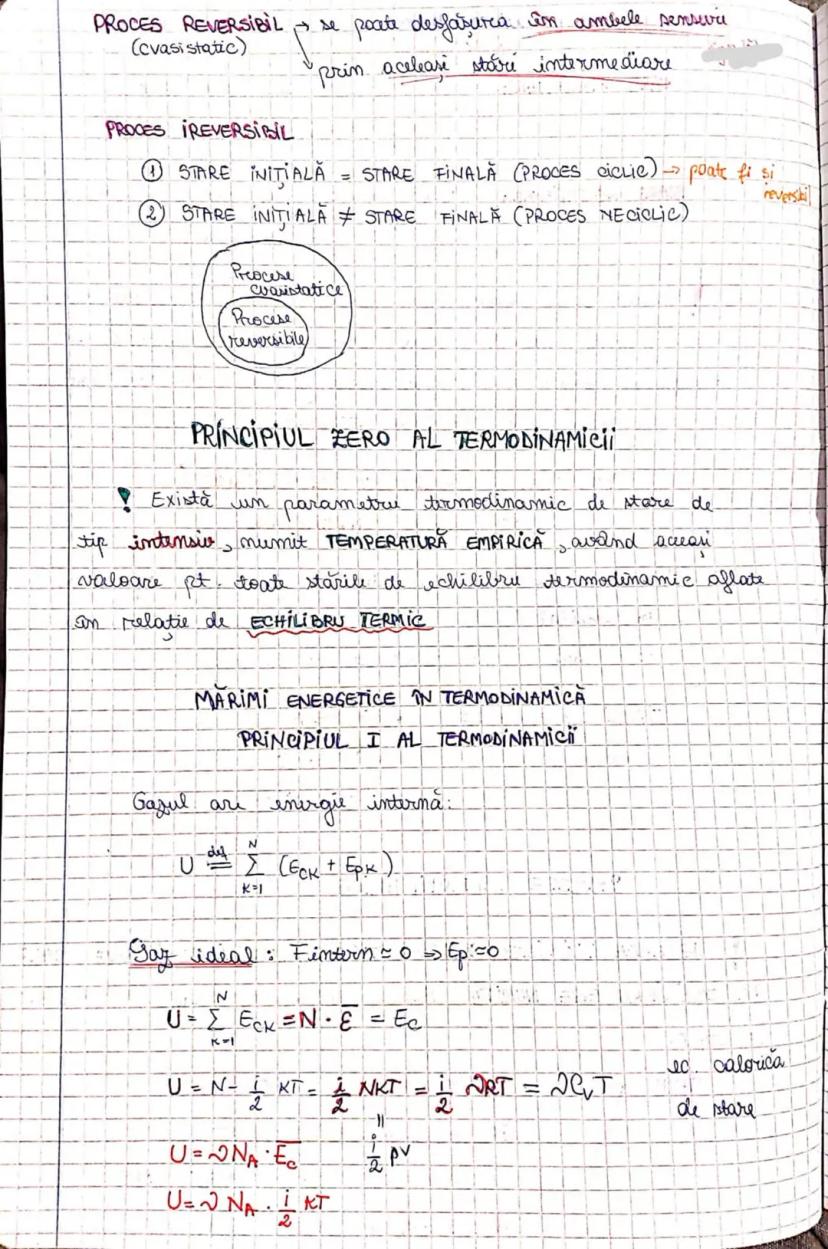 PROCES REVERSIBIL → se poate desfășura în ambele sensuri
(cvasistatic)
prin aceleași stări intermediare
PROCES IREVERSIBIL
① STARE INIȚIALĂ = STARE FINALĂ (PROCES CICLIC) → poate fi și
reversibil
② STARE INIȚIALĂ ≠ STARE FINALĂ (PROCES NECICLIC)
Procese
cvasistatice
Procese
reversibile
PRINCIPIUL ZERO AL TERMODINAMICII
! Există un parametru termodinamic de stare de
tip intensiv, numit TEMPERATURĂ EMPIRICĂ, având aceeași
valoare pt. toate stările de echilibru termodinamic aflate
în relație de ECHILIBRU TERMIC
MĂRIMI ENERGETICE ÎN TERMODINAMICĂ
PRINCIPIUL I AL TERMODINAMICII
Gazul are energie internă:
U def= N Σ K=1 (ECK + EPK)
Gaz ideal: Fintern ≃ 0 ⇒ Ep ≃ 0
U = N Σ K=1 ECK = N · ε̅ = Ec
U = N - i/2 KT = i/2 NKT = i/2 νRT = νCvT
ec. calorică
de stare
= i/2 pV
U = νNA · E̅c
U = ν NA · i/2 KT